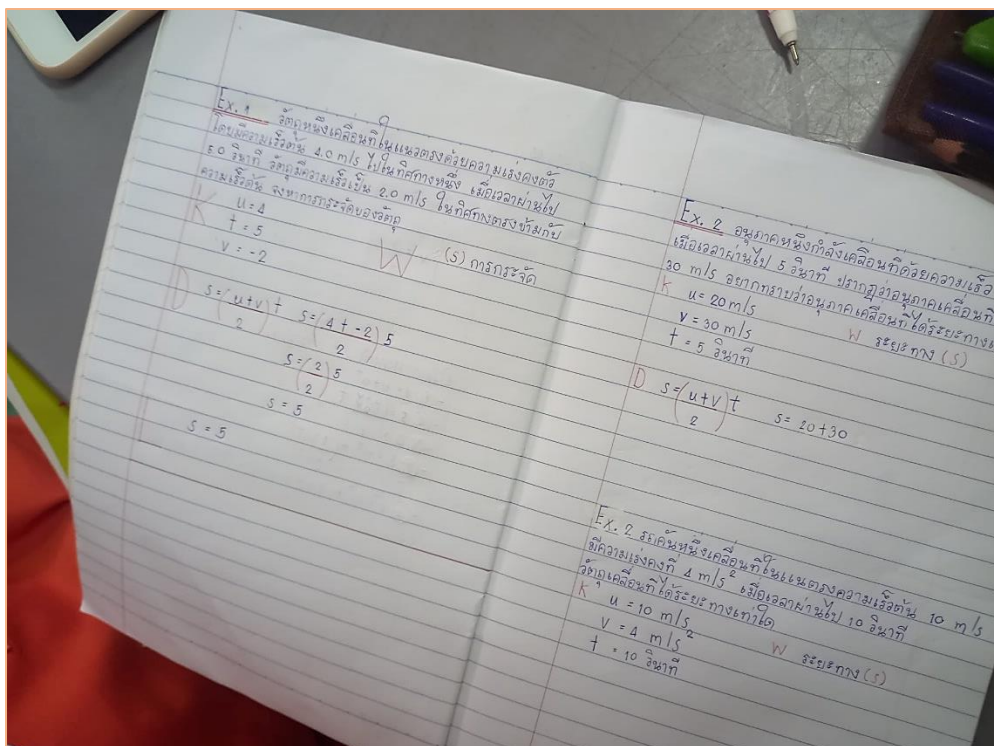 Ex. 1 วัตถุหนึ่งเคลื่อนที่ในแนวตรงด้วยความเร่งคงตัว
โดยมีความเร็วต้น 4.0 m/s ไปในทิศทางหนึ่ง เมื่อเวลาผ่านไป
5.0 วินาที วัตถุมีความเร็วเป็น 2.0 m/s ในทิศทางตรงข้ามกับ
ความเร็วต้น จงหาการกระจัดของวัตถุ
K u = 4
t = 5
v = -2
W (s) การกระจัด
D s = (u+v/2) t s = (4 + -2/2) 5
s = (2/2) 5
s = 5
s = 5
Ex. 2 อนุภาคหนึ่งกำลังเคลื่อนที่ด้วยความเร็ว
เมื่อเวลาผ่านไป 5 วินาที ปรากฏว่าอนุภาคเคลื่อนที่
30 m/s อยากทราบว่าอนุภาคเคลื่อนที่ได้ระยะทาง
K u = 20 m/s
v = 30 m/s
t = 5 วินาที
W ระยะทาง (s)
D s = (u+v/2) t s = 20+30
Ex. 2 รถคันหนึ่งเคลื่อนที่ในแนตรงความเร็วต้น 10 m/s
มีความเร่งคงที่ 4 m/s² เมื่อเวลาผ่านไป 10 วินาที
วัตถุเคลื่อนที่ได้ระยะทางเท่าใด
K u = 10 m/s
v = 4 m/s²
t = 10 วินาที
W ระยะทาง (s)